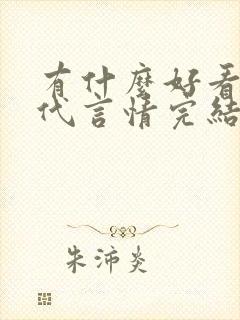 有什麼好看
代言情完結
朱沛炎